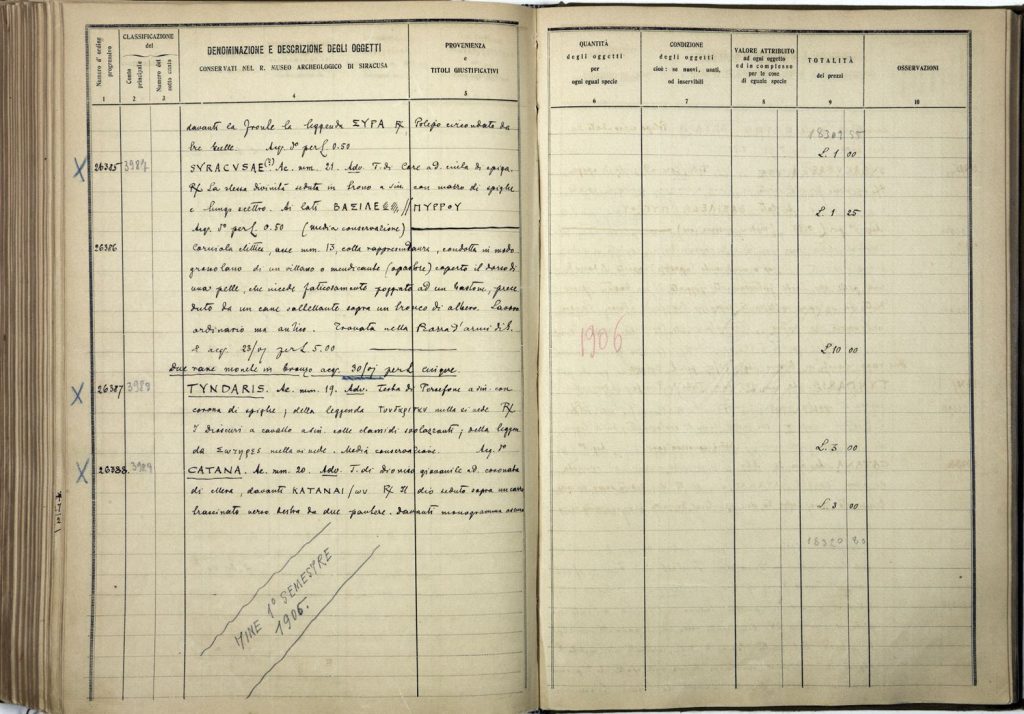 CLASSIFICAZIONE
del
Numero d'ordine progressivo
Conto principale
Numero del sotto conto
DENOMINAZIONE E DESCRIZIONE DEGLI OGGETTI
CONSERVATI NEL R. MUSEO ARCHEOLOGICO DI SIRACUSA
PROVENIENZA
e
TITOLI GIUSTIFICATIVI
1 2 3 4 5
davanti la fronte la leggenda ΣΥΡΑ R/ Polipo circondato da
tre stelle. Acq. d° per £ 0.50
26385 3987 SYRACUSAE (?) Ae. mm. 21. Adv. T. di Core a d. cinta di spiga.
R/ La stessa divinità seduta in trono a sin. con mazzo di spighe
e lungo scettro. Ai lati ΒΑΣΙΛΕ // ΠΥΡΡΟΥ
Acq. d° per £ 0.50 (media conservazione)
26386 Corniola ellittica, asse mm. 13, colla rappresentanza, condotta in modo
grossolano di un villano o mendicante coperto il dorso di
una pelle, che incede faticosamente poggiato ad un bastone, prece
duto da un cane saltellante sopra un tronco di albero. Lavoro
ordinario ma antico. Trovata nella Piazza d'armi di S.
e acq. 23/vj per £ 5.00
Due rare monete in bronzo acq. 30/vj per £ cinque
26387 3988 TYNDARIS. Ae. mm. 19. Adv. Testa di Persefone a sin. con
corona di spighe; della leggenda nulla si vede R/
I Dioscuri a cavallo a sin. colle clamidi svolazzanti; della leggen
da nulla si vede. Media conservazione. Acq. d°
26388. 3989 CATANA. Ae. mm. 20. Adv. T. di Dioniso giovanile a d. coronata
di edera, davanti ΚΑΤΑΝΑΙ/ων R/ Il dio seduto sopra un carro
trascinato verso destra da due pantere. Davanti monogramma
FINE 1° SEMESTRE
1906.
QUANTITÀ
degli oggetti
per
ogni egual specie
CONDIZIONE
degli oggetti
cioè: se nuovi, usati,
od inservibili
VALORE ATTRIBUITO
ad ogni oggetto
ed in complesso
per le cose
di eguale specie
TOTALITÀ
dei prezzi
OSSERVAZIONI
6 7 8 9 10
18309 55
£. 1 00
£. 1 25
1906
£.10 00
£. 3 00
£. 3 00
18320 80